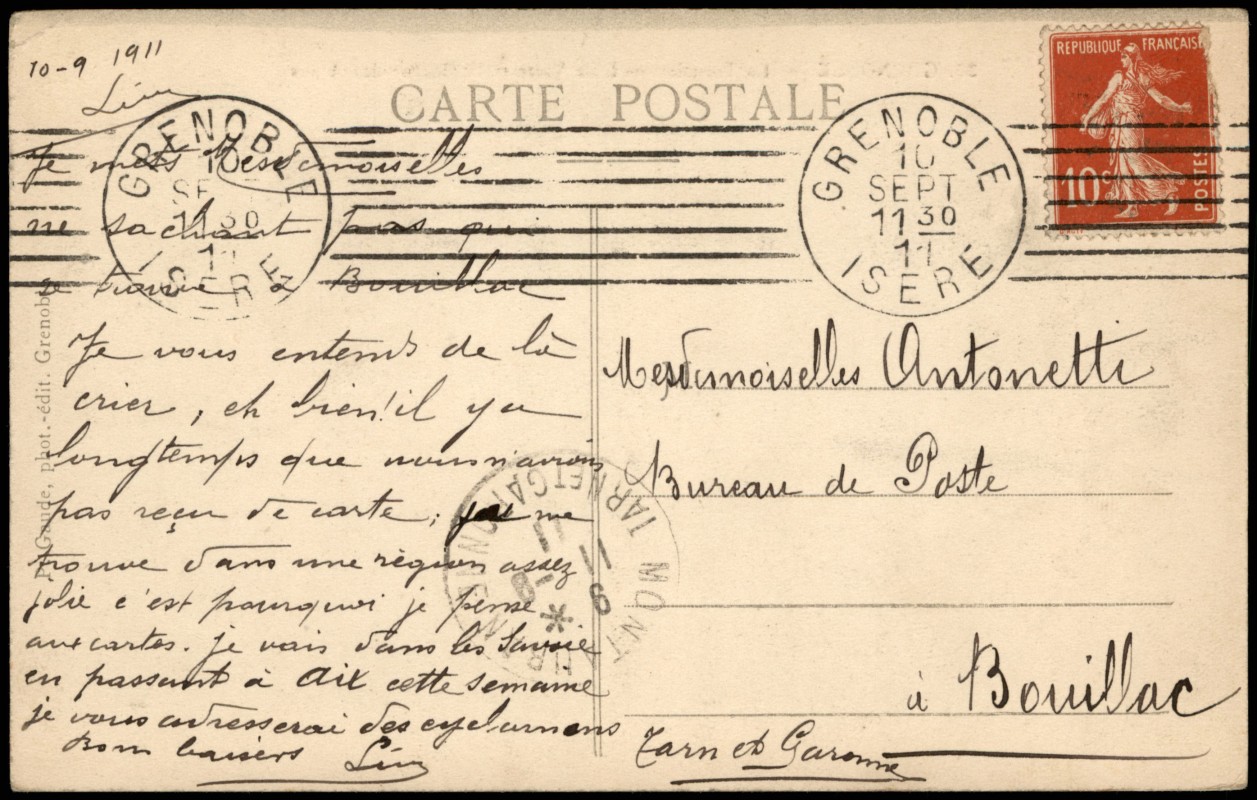 10-9 1911
CARTE POSTALE
REPUBLIQUE FRANÇAISE
10c
POSTES
GRENOBLE
10
SEPT
11 30
11
ISERE
GRENOBLE
ISERE
Je mets Mesdemoiselles
ne sachant pas qui
se trouve à Bouillac
Je vous entends de là
crier, eh bien! il y a
longtemps que nous n'avions
pas reçu de carte; je me
trouve dans une région assez
jolie c'est pourquoi je pense
aux cartes. je vais dans les Savoie
en passant à Aix cette semaine
je vous adresserai des cyclamens
Bons baisers
Mesdemoiselles Antonetti
Bureau de Poste
à Bouillac
Tarn et Garonne
P. Gaude, phot.-édit. Grenoble
TARN ET GARONNE
11-9
11
*